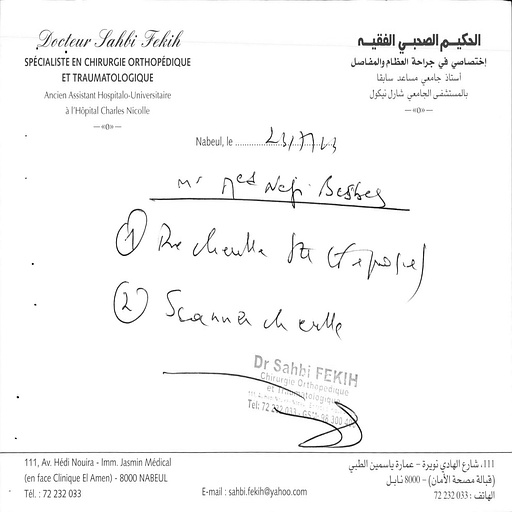 Docteur Sahbi Fekih
SPÉCIALISTE EN CHIRURGIE ORTHOPÉDIQUE
ET TRAUMATOLOGIQUE
Ancien Assistant Hospitalo-Universitaire
à l'Hôpital Charles Nicolle
الحكيم الصحبي الفقيه
إختصاصي في جراحة العظام والمفاصل
أستاذ جامعي مساعد سابقا
بالمستشفى الجامعي شارل نيكول
Nabeul, le
Mr Med
① Rx cheville
② Scanner cheville
Dr Sahbi FEKIH
Chirurgie Orthopédique
et Traumatologique
Tél: 72 232 033
111, Av. Hédi Nouira - Imm. Jasmin Médical
(en face Clinique El Amen) - 8000 NABEUL
Tél. : 72 232 033
E-mail : sahbi.fekih@yahoo.com
111، شارع الهادي نويرة - عمارة ياسمين الطبي
(قبالة مصحة الأمان) - 8000 نابل
الهاتف : 72 232 033